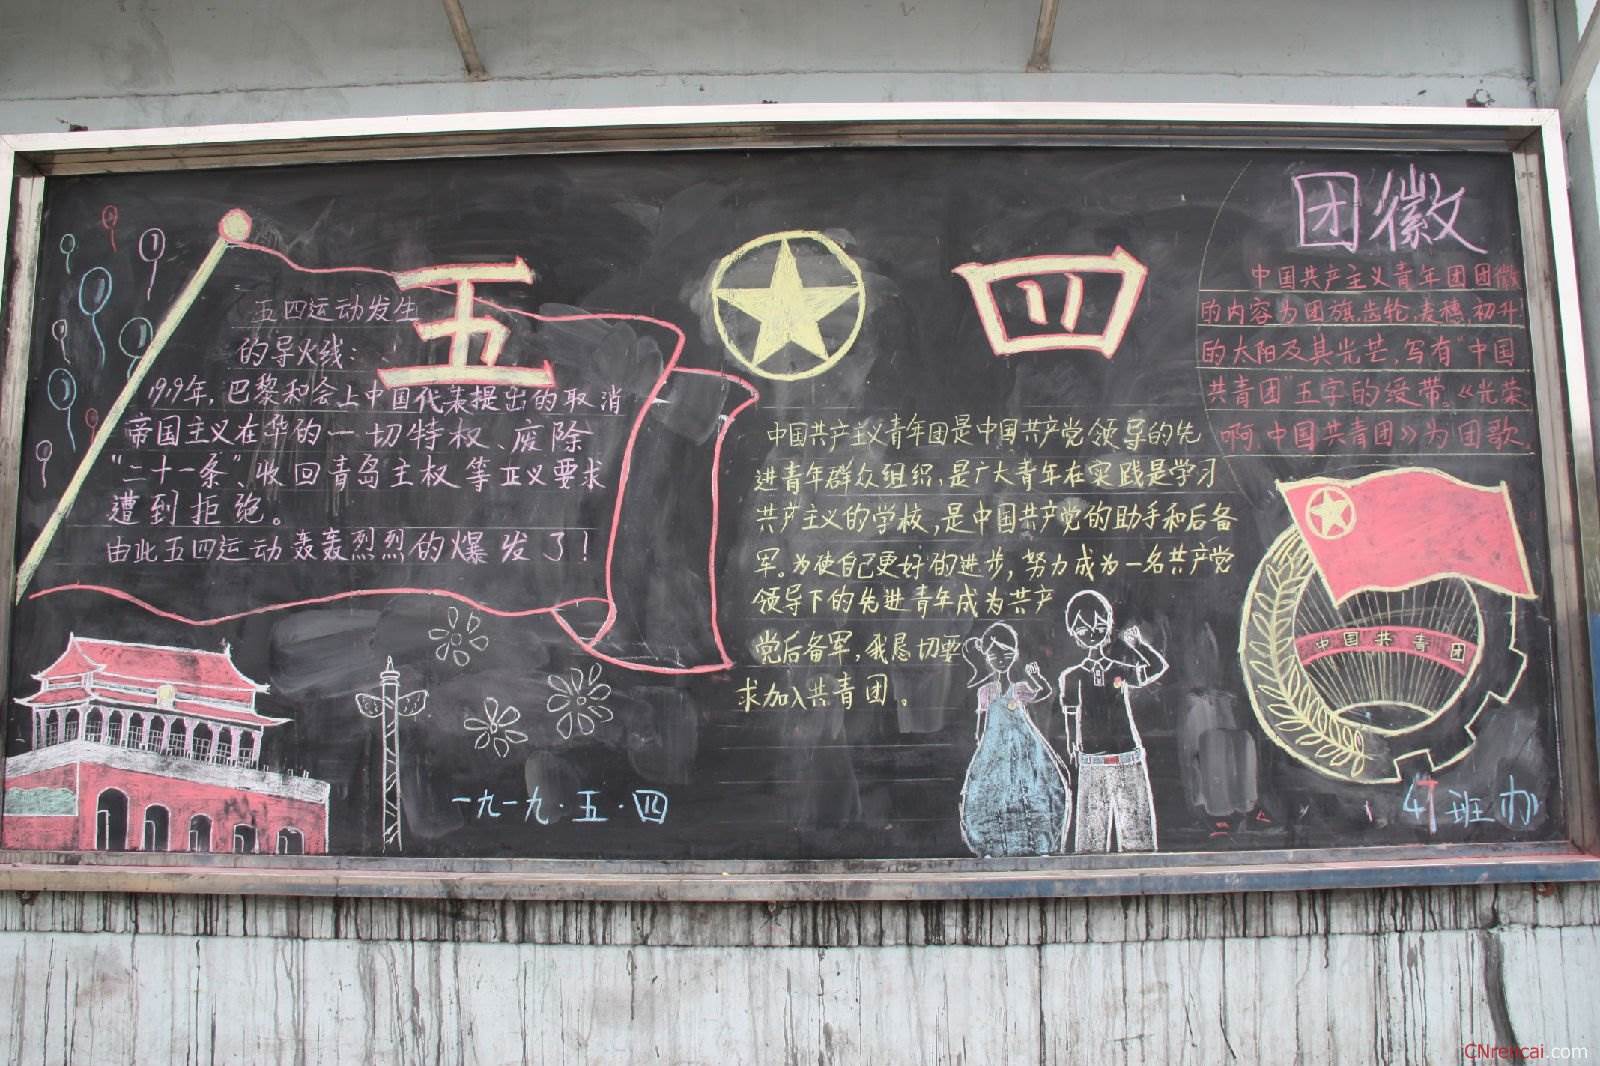 五 四
五四运动发生
的导火线：
1919年，巴黎和会上中国代表提出的取消
帝国主义在华的一切特权、废除
“二十一条”、收回青岛主权等正义要求
遭到拒绝。
由此五四运动轰轰烈烈的爆发了！
一九一九·五·四
中国共产主义青年团是中国共产党领导的先
进青年群众组织，是广大青年在实践是学习
共产主义的学校，是中国共产党的助手和后备
军。为使自己更好的进步，努力成为一名共产党
领导下的先进青年成为共产
党后备军，我恳切要
求加入共青团。
团徽
中国共产主义青年团团徽
的内容为团旗、齿轮、麦穗、初升
的太阳及其光芒，写有“中国
共青团”五字的绶带。《光荣
啊，中国共青团》为团歌。
中国共青团
班办
CNrencai.com